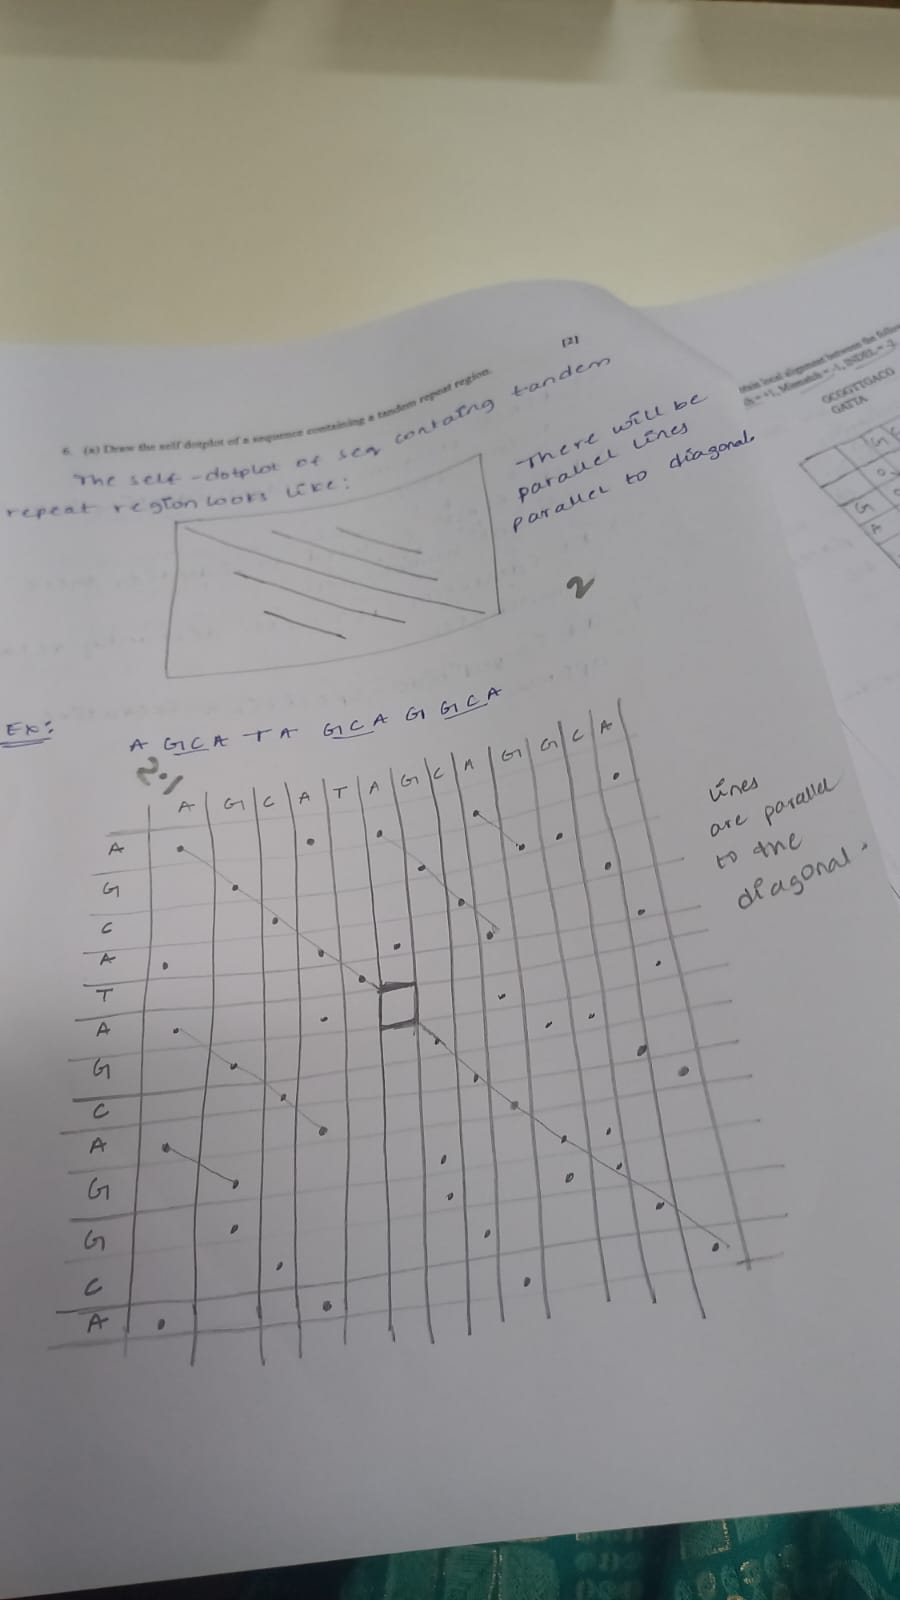 [2]
6. (a) Draw the self dotplot of a sequence containing a tandem repeat region.
The self-dotplot of seq containg tandem
repeat region looks like:
There will be
parallel lines
parallel to diagonal.
2
Ex:
A G C A T A G C A G G C A
2.1
A G C A T A G C A G G C A
A
G
C
A
T
A
G
C
A
G
G
C
A
lines
are parallel
to the
diagonal.
local alignment between the
= +1, Mismatch = -1, INDEL = -2
GCGGTTGACG
GATTA
G
G
A